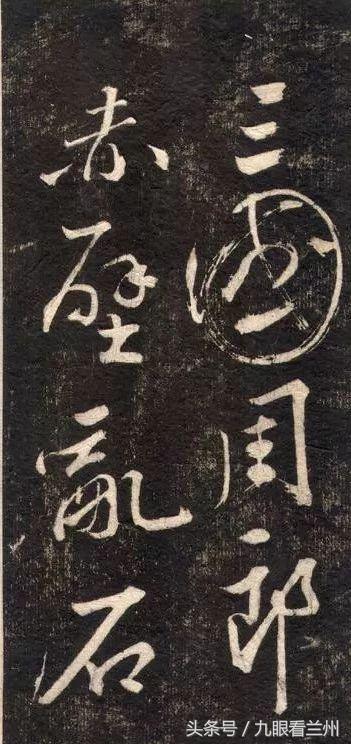 三國周郎
赤壁亂石
头条号 / 九眼看兰州